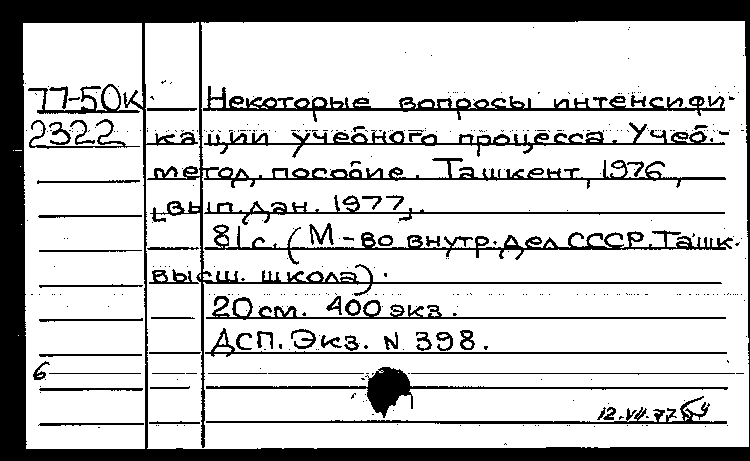 77-50к
2322
Некоторые вопросы интенсифи-
кации учебного процесса. Учеб.-
метод. пособие. Ташкент, 1976,
[вып. дан. 1977].
81 с. (М-во внутр. дел СССР. Ташк.
высш. школа).
20 см. 400 экз.
ДСП. Экз. N 398.
6
12.VII.77